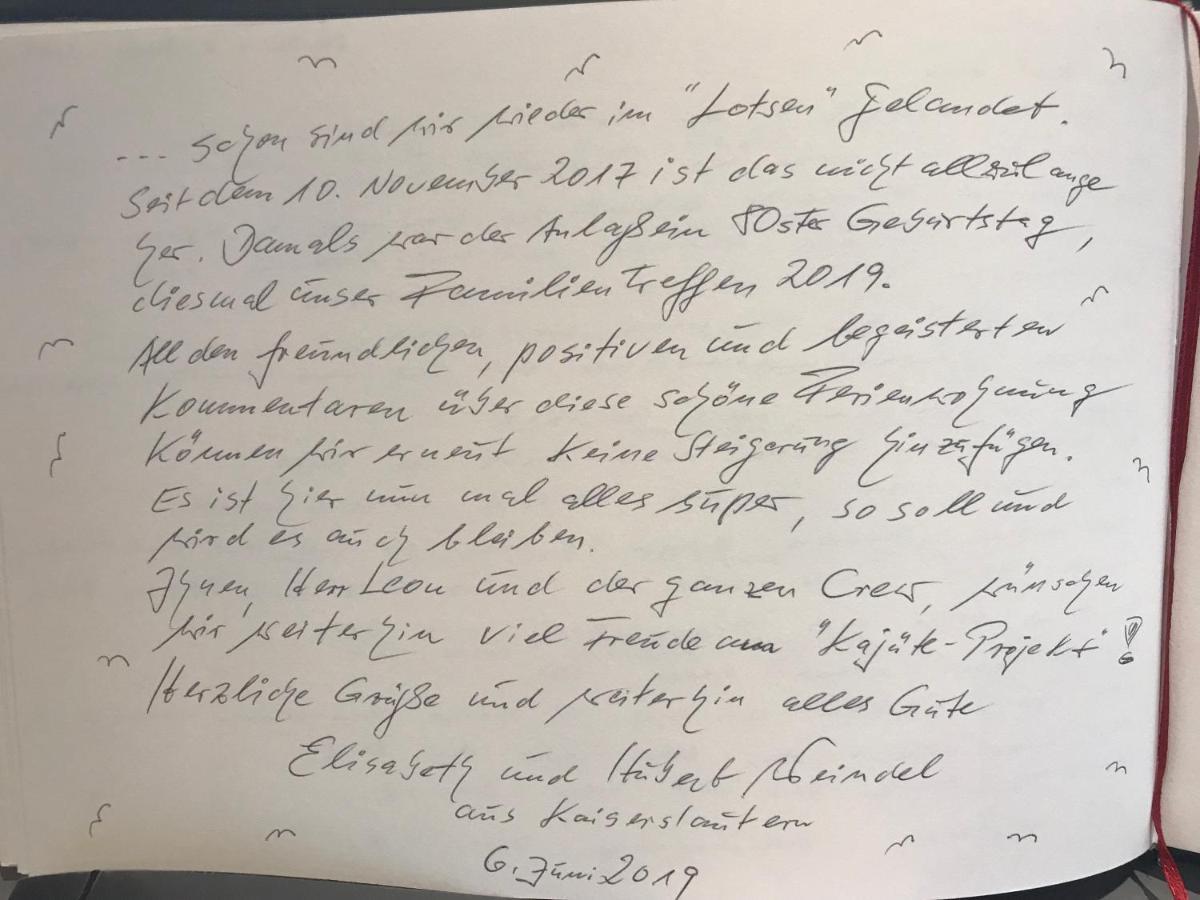 ... schon sind wir wieder im "Lotsen" gelandet.
Seit dem 10. November 2017 ist das nicht allzulange
her. Damals war der Anlaß ein 80ster Geburtstag,
diesmal unser Familientreffen 2019.
All den freundlichen, positiven und begeisterten
Kommentaren über diese schöne Ferienwohnung
können wir erneut keine Steigerung hinzufügen.
Es ist hier nun mal alles super, so soll und
wird es auch bleiben.
Ihnen, Herr Leon und der ganzen Crew, wünschen
wir weiterhin viel Freude am "Kajüte-Projekt"!
Herzliche Grüße und weiterhin alles Gute
Elisabeth und Hubert Weindel
aus Kaiserslautern
6. Juni 2019